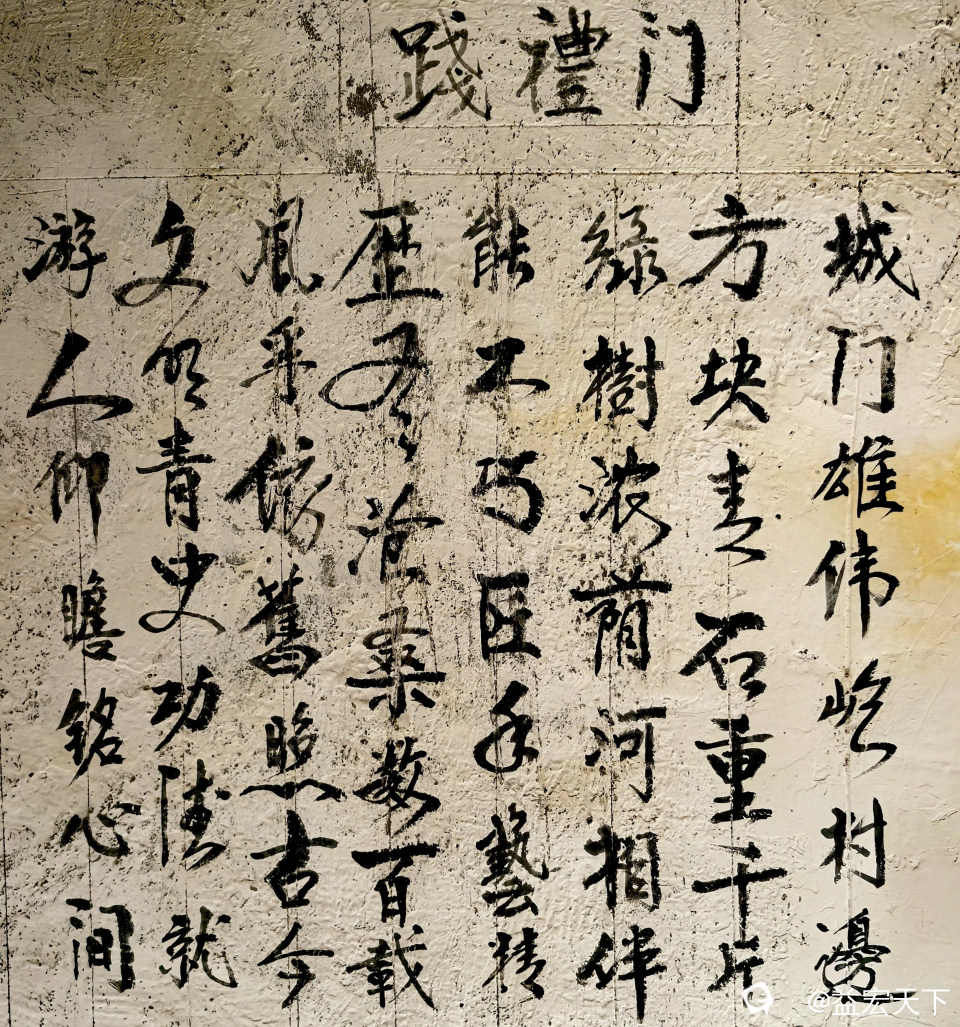 踐禮门
城门雄伟屹村邊
方块青石重千斤
綠樹浓荫河相伴
能工巧匠手藝精
歷尽沧桑数百載
风采依舊照古今
文明青史功德就
游人仰瞻銘心间
@益宏天下